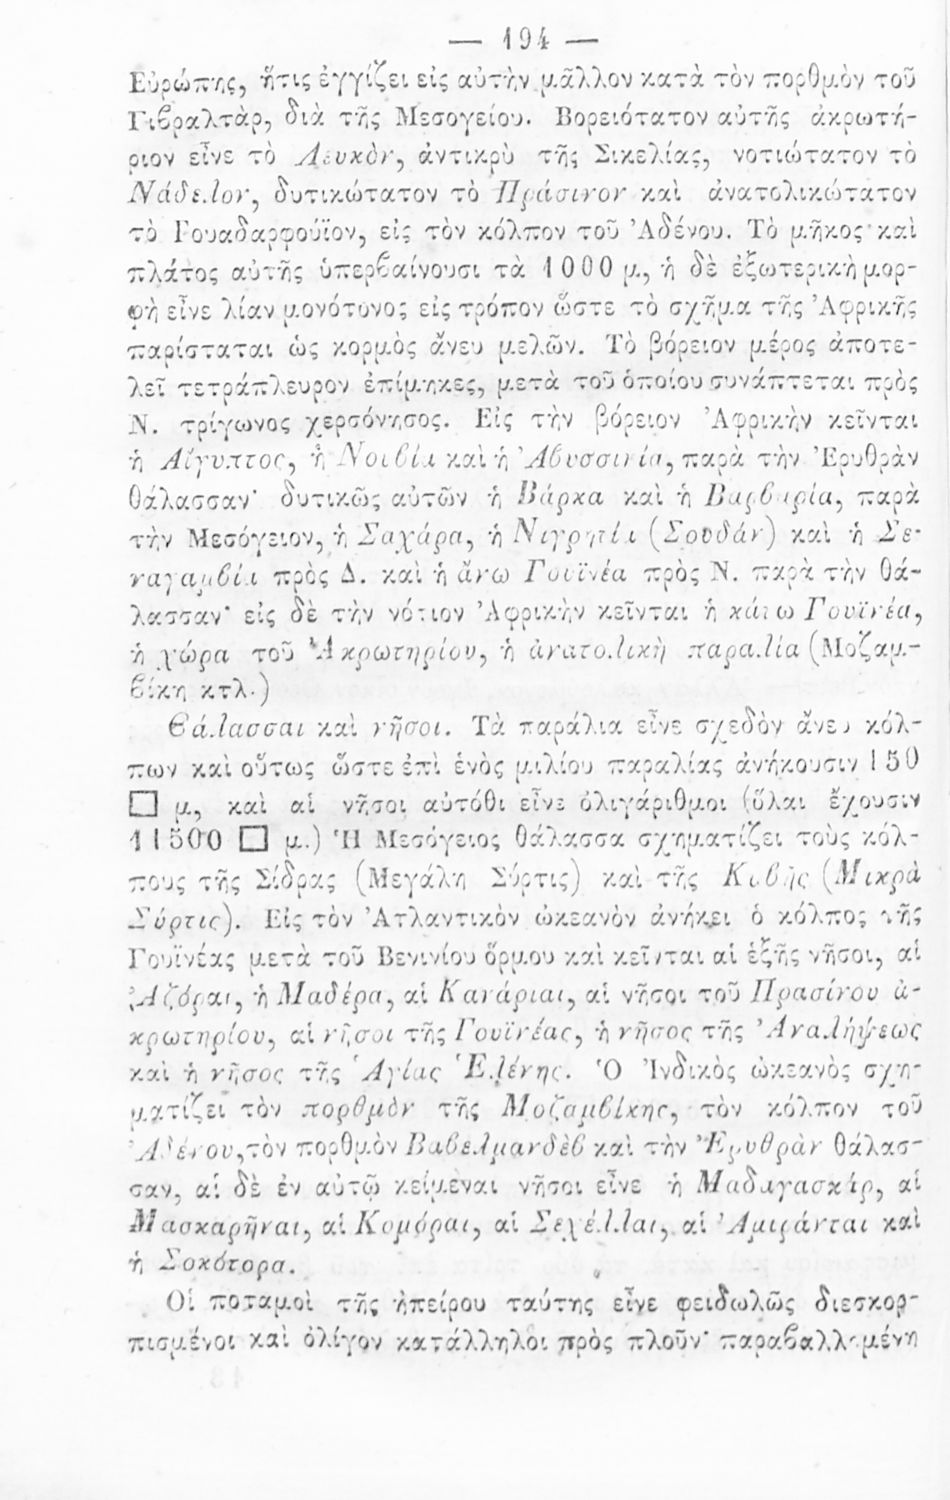 — 194 —
Εὐρώπης, ἥτις ἐγγίζει εἰς αὐτὴν μᾶλλον κατὰ τὸν πορθμὸν τοῦ
Γιβραλτὰρ, διὰ τῆς Μεσογείου. Βορειότατον αὐτῆς ἀκρωτή-
ριον εἶνε τὸ Λευκὸν, ἀντικρὺ τῆς Σικελίας, νοτιώτατον τὸ
Νάδελον, δυτικώτατον τὸ Πράσινον καὶ ἀνατολικώτατον
τὸ Γουαδαρφούϊον, εἰς τὸν κόλπον τοῦ Ἀδένου. Τὸ μῆκος καὶ
πλάτος αὐτῆς ὑπερβαίνουσι τὰ 1000 μ, ἡ δὲ ἐξωτερικὴ μορ-
φὴ εἶνε λίαν μονότονος εἰς τρόπον ὥστε τὸ σχῆμα τῆς Ἀφρικῆς
παρίσταται ὡς κορμὸς ἄνευ μελῶν. Τὸ βόρειον μέρος ἀποτε-
λεῖ τετράπλευρον ἐπίμηκες, μετὰ τοῦ ὁποίου συνάπτεται πρὸς
Ν. τρίγωνος χερσόνησος. Εἰς τὴν βόρειον Ἀφρικὴν κεῖνται
ἡ Αἴγυπτος, ἡ Νουβία καὶ ἡ Ἀβυσσινία, παρὰ τὴν Ἐρυθρὰν
θάλασσαν· δυτικῶς αὐτῶν ἡ Βάρκα καὶ ἡ Βαρβαρία, παρὰ
τὴν Μεσόγειον, ἡ Σαχάρα, ἡ Νιγρητία (Σουδάν) καὶ ἡ Σε-
ναγαμβία πρὸς Δ. καὶ ἡ ἄνω Γουϊνέα πρὸς Ν. παρὰ τὴν θά-
λασσαν· εἰς δὲ τὴν νότιον Ἀφρικὴν κεῖνται ἡ κάτω Γουϊνέα,
ἡ χώρα τοῦ Ἀκρωτηρίου, ἡ ἀνατολικὴ παραλία (Μοζαμ-
βίκη κτλ.)
Θάλασσαι καὶ νῆσοι. Τὰ παράλια εἶνε σχεδὸν ἄνευ κόλ-
πων καὶ οὕτως ὥστε ἐπὶ ἑνὸς μιλίου παραλίας ἀνήκουσιν 150
□ μ, καὶ αἱ νῆσοι αὐτόθι εἶνε ὀλιγάριθμοι (ὅλαι ἔχουσιν
11500 □ μ.) Ἡ Μεσόγειος θάλασσα σχηματίζει τοὺς κόλ-
πους τῆς Σίδρας (Μεγάλη Σύρτις) καὶ τῆς Καβῆς (Μικρὰ
Σύρτις). Εἰς τὸν Ἀτλαντικὸν ὠκεανὸν ἀνήκει ὁ κόλπος τῆς
Γουϊνέας μετὰ τοῦ Βενινίου ὅρμου καὶ κεῖνται αἱ ἑξῆς νῆσοι, αἱ
Ἀζόραι, ἡ Μαδέρα, αἱ Κανάριαι, αἱ νῆσοι τοῦ Πρασίνου ἀ-
κρωτηρίου, αἱ νῆσοι τῆς Γουϊνέας, ἡ νῆσος τῆς Ἀναλήψεως
καὶ ἡ νῆσος τῆς Ἁγίας Ἑλένης. Ὁ Ἰνδικὸς ὠκεανὸς σχη-
ματίζει τὸν πορθμὸν τῆς Μοζαμβίκης, τὸν κόλπον τοῦ
Ἀδένου, τὸν πορθμὸν Βαβελμανδὲβ καὶ τὴν Ἐρυθρὰν θάλασ-
σαν, αἱ δὲ ἐν αὐτῷ κείμεναι νῆσοι εἶνε ἡ Μαδαγασκὰρ, αἱ
Μασκαρῆναι, αἱ Κομόραι, αἱ Σεχέλλαι, αἱ Ἀμιράνται καὶ
ἡ Σοκότορα.
Οἱ ποταμοὶ τῆς ἠπείρου ταύτης εἶνε φειδωλῶς διεσκορ-
πισμένοι καὶ ὀλίγον κατάλληλοι πρὸς πλοῦν· παραβαλλομένη